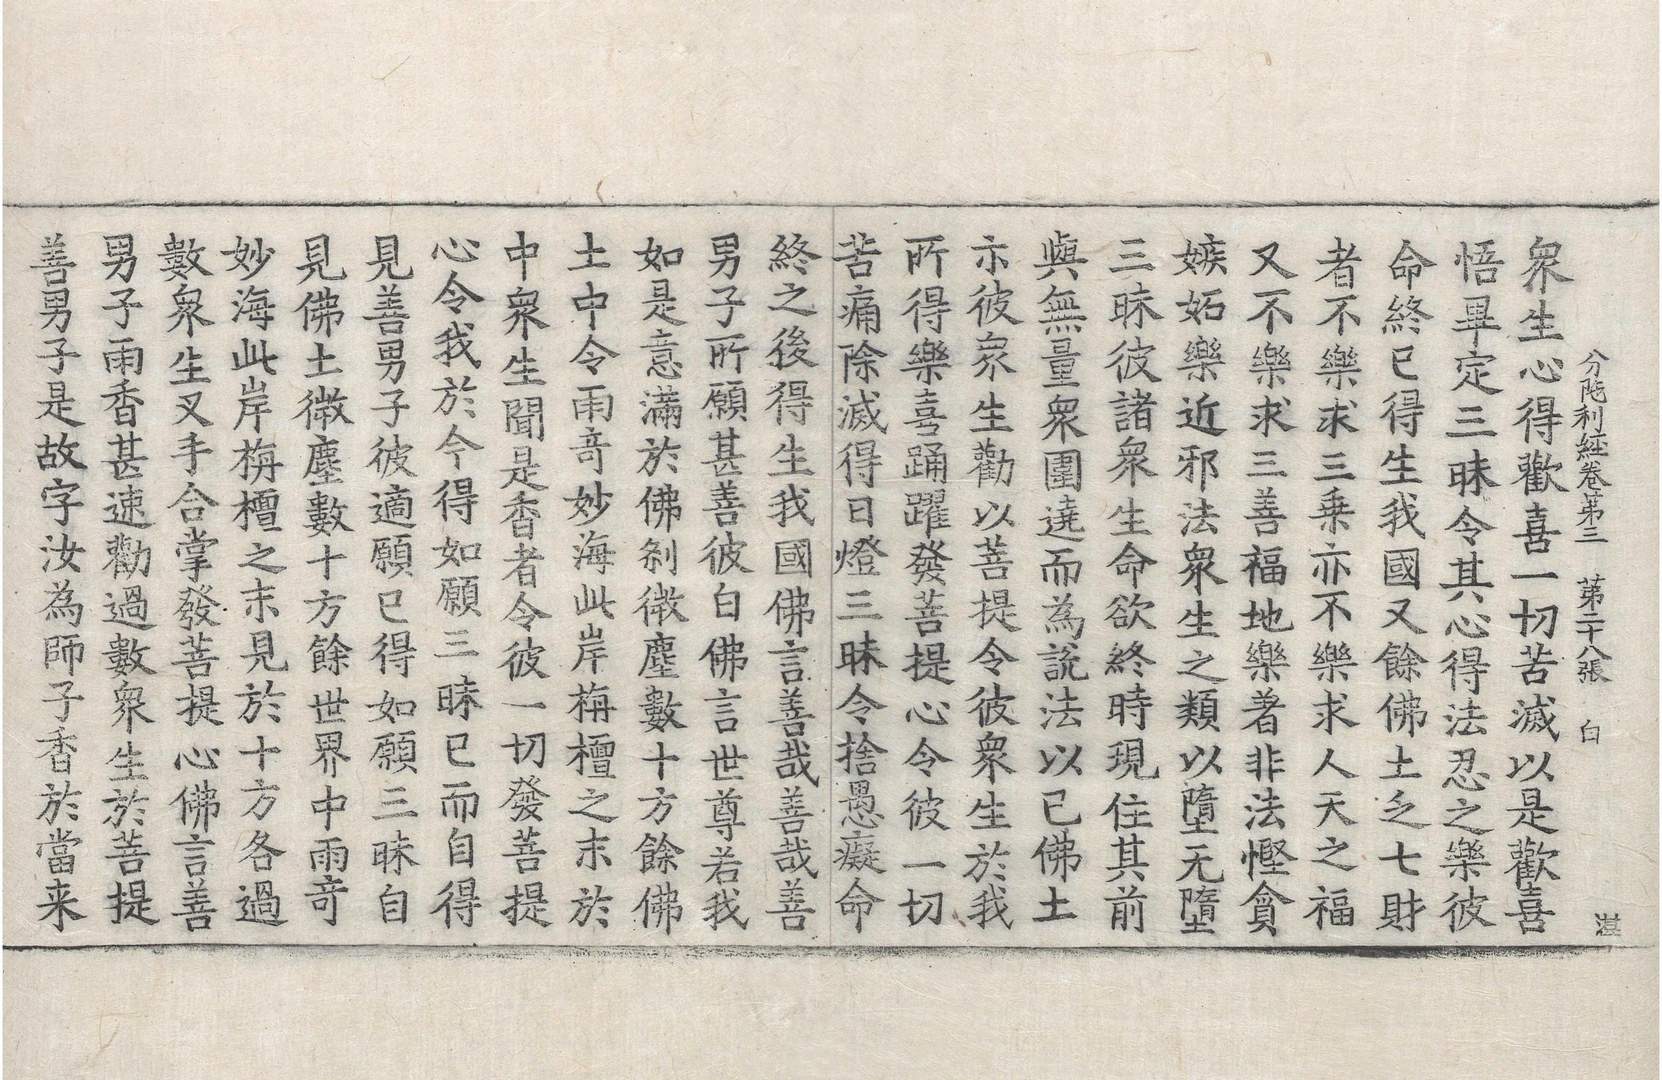 分陁利經卷第三 第二十八張 白 湛
衆生心得歡喜一切苦滅以是歡喜
悟畢定三昧令其心得法忍之樂彼
命終已得生我國又餘佛土乏七財
者不樂求三乗亦不樂求人天之福
又不樂求三善福地樂著非法慳貪
嫉妬樂近邪法衆生之類以墮无墮
三昧彼諸衆生命欲終時現住其前
與無量衆圍遶而為說法以已佛土
示彼衆生勸以菩提令彼衆生於我
所得樂喜踊躍發菩提心令彼一切
苦痛除滅得日燈三昧令捨愚癡命
終之後得生我國佛言善哉善哉善
男子所願甚善彼白佛言世尊若我
如是意滿於佛刹微塵數十方餘佛
土中令雨竒妙海此岸栴檀之末於
中衆生聞是香者令彼一切發菩提
心令我於今得如願三昧已而自得
見善男子彼適願已得如願三昧自
見佛土微塵數十方餘世界中雨竒
妙海此岸栴檀之末見於十方各過
數衆生叉手合掌發菩提心佛言善
男子雨香甚速勸過數衆生於菩提
善男子是故字汝為師子香於當来